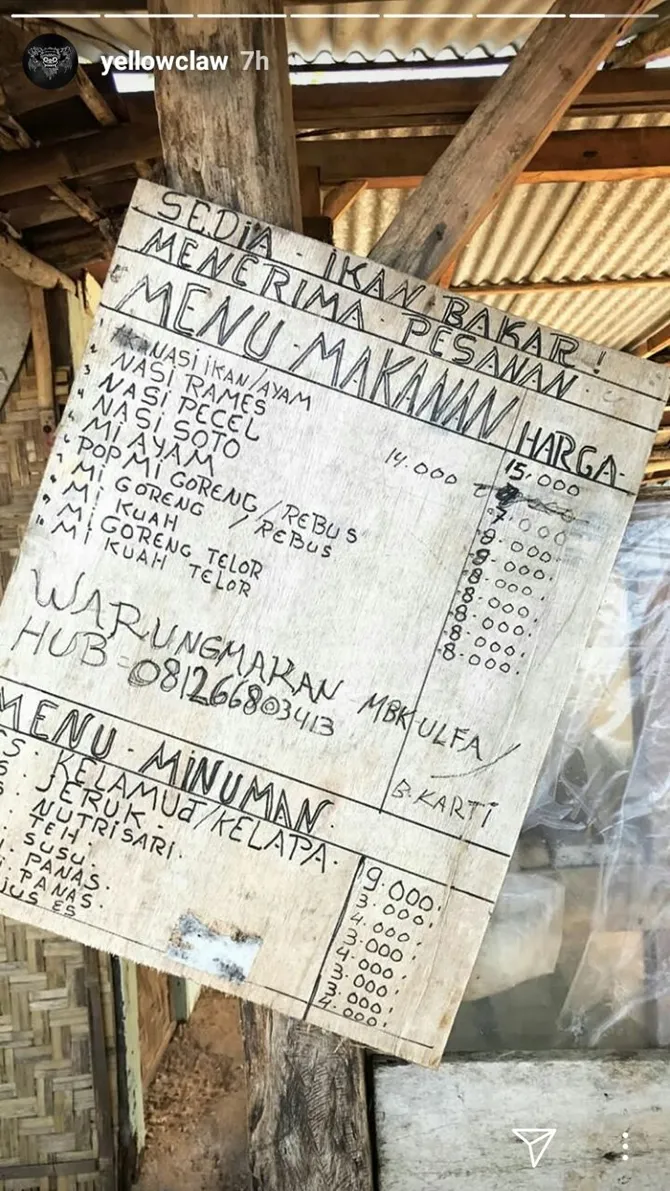 yellowclaw 7h
SEDIA - IKAN BAKAR!
MENERIMA - PESANAN.
MENU - MAKANAN HARGA-
NASI IKAN/AYAM 15.000
NASI RAMES 14.000
NASI PECEL 7.000
NASI SOTO
MI AYAM
POP MI GORENG/REBUS 8.000.
MI GORENG / REBUS 8.000.
MI KUAH 8.000.
MI GORENG TELOR 8.000.
MI KUAH TELOR 8.000.
WARUNGMAKAN MBK ULFA/
HUB = 081266803413
B.KARTI
MENU - MINUMAN.
KELAMUd/KELAPA. 9.000.
JERUK. 3.000.
NUTRISARI. 4.000.
TEH. 3.000.
SUSU. 4.000.
PANAS. 3.000.
PANAS. 3.000.
JUS ES 4.000.